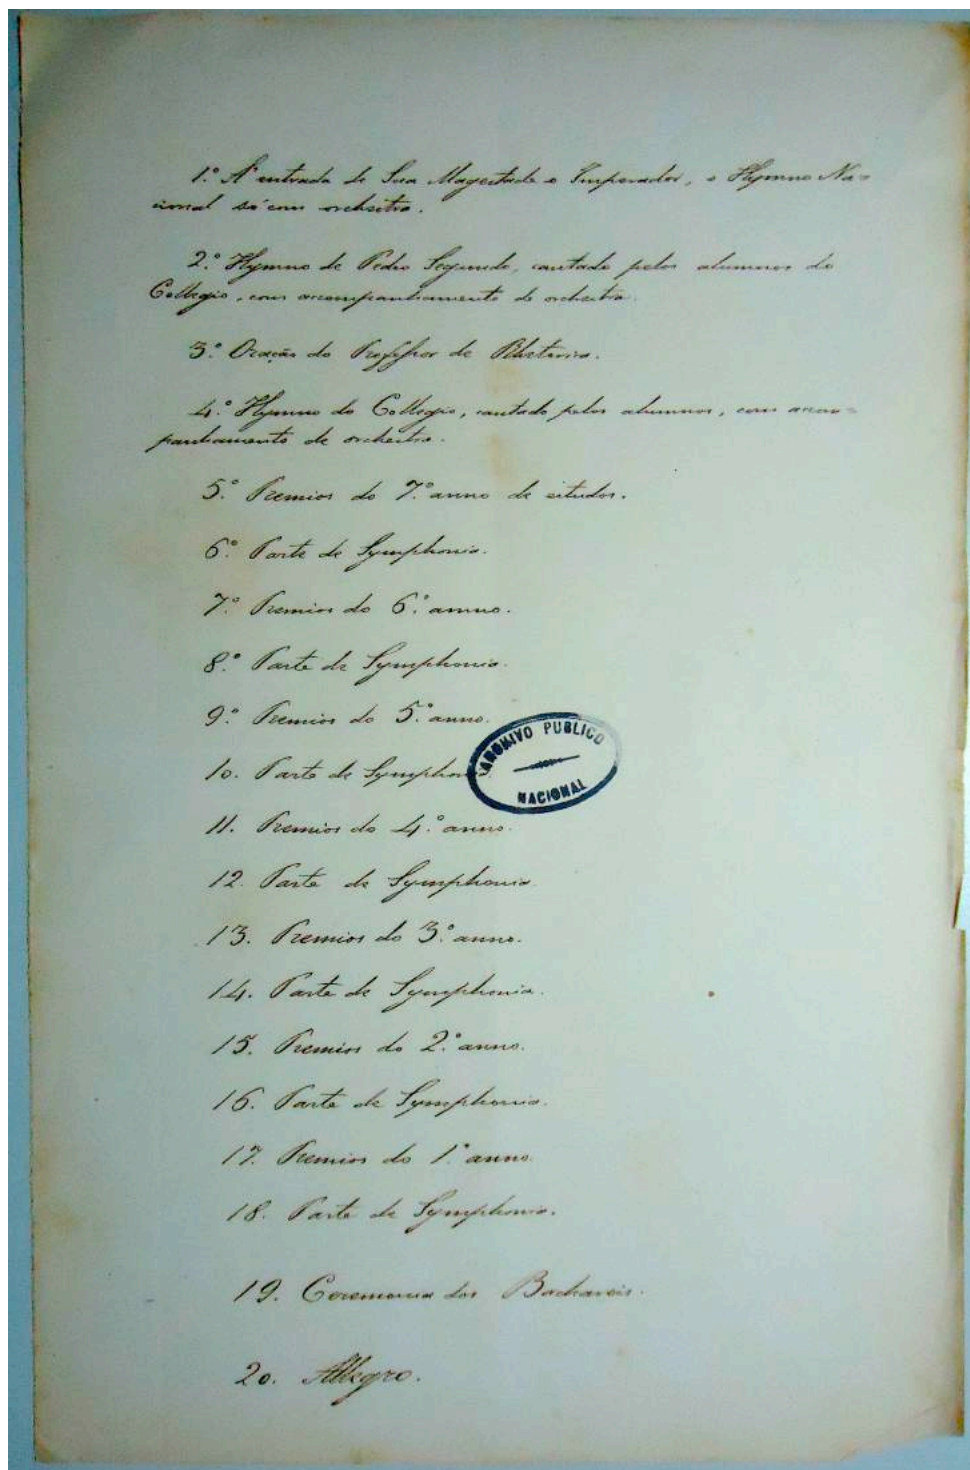 1.º A' entrada de Sua Magestade o Imperador, o Hymno Na=
cional só com orchestra.
2.º Hymno de Pedro Segundo, cantado pelos alumnos do
Collegio, com acompanhamento de orchestra.
3.º Oração do Professor de Rhetorica.
4.º Hymno do Collegio, cantado pelos alumnos, com acom=
panhamento de orchestra.
5.º Premios do 7.º anno de estudos.
6.º Parte de Symphonia.
7.º Premios do 6.º anno.
8.º Parte de Symphonia.
9.º Premios do 5.º anno.
10. Parte de Symphonia
ARCHIVO PUBLICO
NACIONAL
11. Premios do 4.º anno.
12. Parte de Symphonia
13. Premios do 3.º anno.
14. Parte de Symphonia.
15. Premios do 2.º anno.
16. Parte de Symphonia.
17. Premios do 1.º anno.
18. Parte de Symphonia.
19. Ceremonia dos Bachareis.
20. Allegro.